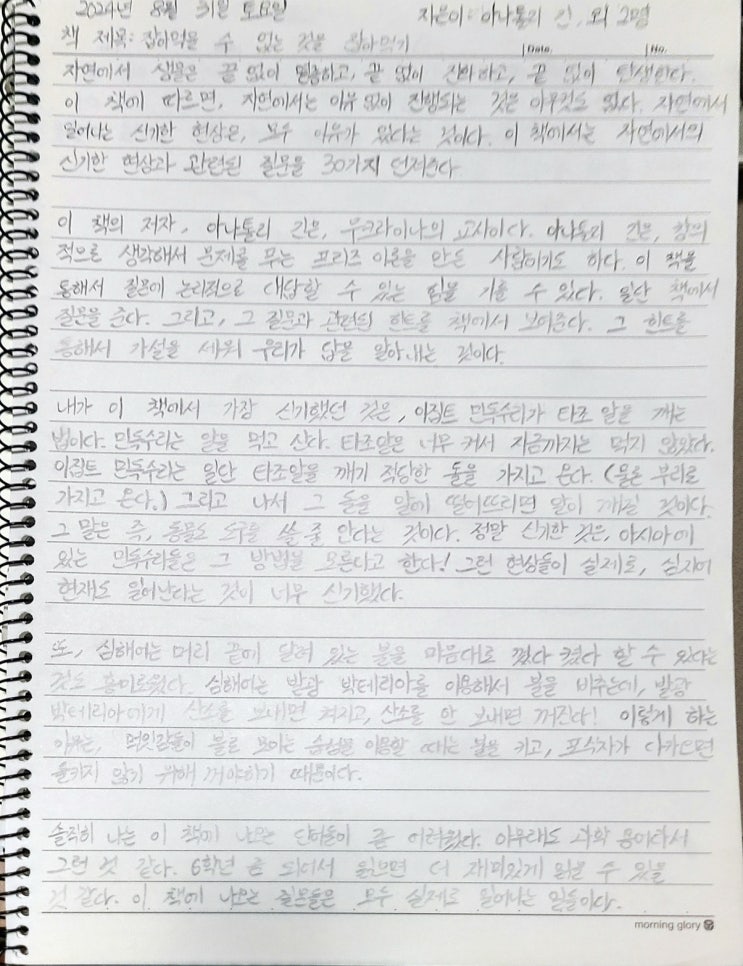 2024년 8월 31일 토요일 지은이: 아나톨리 긴, 외 2명
책 제목: 잡아먹을 수 없는 것을 잡아먹기 Date. No.
자연에서 생물은 끝 없이 멸종하고, 끝 없이 진화하고, 끝 없이 탄생한다.
이 책에 따르면, 자연에서는 이유 없이 진행되는 것은 아무것도 없다. 자연에서
일어나는 신기한 현상은, 모두 이유가 있다는 것이다. 이 책에서는 자연에서의
신기한 현상과 관련된 질문을 30가지 던져준다
이 책의 저자, 아나톨리 긴은, 우크라이나의 교사이다. 아나톨리 긴은, 창의
적으로 생각해서 문제를 푸는 프리즈 이론을 만든 사람이기도 하다. 이 책을
통해서 질문에 논리적으로 대답할 수 있는 힘을 기를 수 있다. 일단 책에서
질문을 준다. 그리고, 그 질문과 관련된 힌트를 책에서 보여준다. 그 힌트를
통해서 가설을 세워 우리가 답을 알아내는 것이다.
내가 이 책에서 가장 신기했던 것은, 이집트 민독수리가 타조 알을 깨는
법이다. 민독수리는 알을 먹고 산다. 타조알은 너무 커서 지금까지는 먹지 않았다.
이집트 민독수리는 일단 타조알을 깨기 적당한 돌을 가지고 온다. (물론 부리로
가지고 온다.) 그리고 나서 그 돌을 알에 떨어뜨리면 알이 깨질 것이다.
그 말은 즉, 동물도 도구를 쓸 줄 안다는 것이다. 정말 신기한 것은, 아시아에
있는 민독수리들은 그 방법을 모른다고 한다! 그런 현상들이 실제로, 심지어
현재도 일어난다는 것이 너무 신기했다.
또, 심해어는 머리 끝에 달려 있는 불을 마음대로 껐다 켰다 할 수 있다는
것도 흥미로웠다. 심해어는 발광 박테리아를 이용해서 불을 비추는데, 발광
박테리아에게 산소를 보내면 켜지고, 산소를 안 보내면 꺼진다! 이렇게 하는
이유는, 먹잇감들이 불로 모이는 습성을 이용할 때는 불을 키고, 포식자가 다가오면
들키지 않기 위해 꺼야하기 때문이다.
솔직히 나는 이 책에 나오는 단어들이 좀 어려웠다. 아무래도 과학 용어라서
그런 것 같다. 6학년 쯤 되어서 읽으면 더 재미있게 읽을 수 있을
것 같다. 이 책에 나오는 질문들은 모두 실제로 일어나는 일들이다.
morning glory